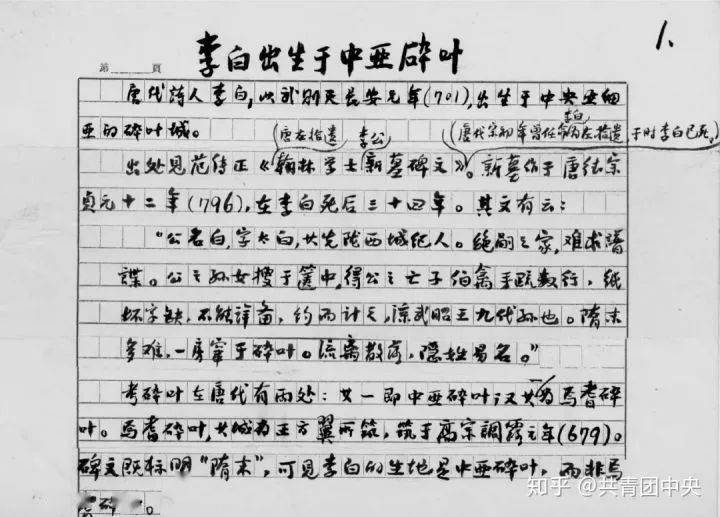 1.
李白出生于中亚碎叶
第 頁
唐代诗人李白，以武则天长安元年(701)，出生于中央亚细
亚的碎叶城。
(唐左拾遗 李公)
李白
(唐代宗初年曾任 为左拾遗，于时李白已死。)
出处见范传正《翰林学士新墓碑文》。新墓作于唐德宗
贞元十二年(796)，在李白死后三十四年。其文有云：
“公名白，字太白，其先陇西成纪人。绝嗣之家，难求谱
諜。公之孙女搜于箧中，得公之亡子伯禽手疏数行，纸
坏字缺，不能详备，约而计之，凉武昭王九代孙也。隋末
多难，一房窜于碎叶。流离散落，隐姓易名。”
考碎叶在唐代有两处：其一即中亚碎叶；又其一为焉耆碎
叶。焉耆碎叶，其城为王方翼所筑，筑于高宗調露元年(679)。
碑文既标明“隋末”，可见李白的生地是中亚碎叶，而非焉
耆碎 。
知乎 @共青团中央